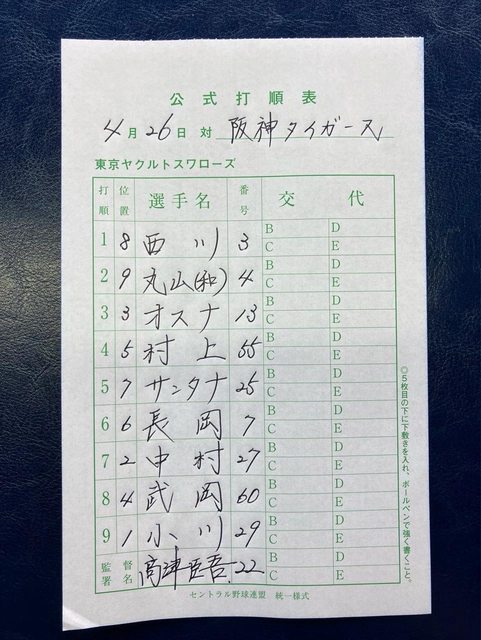 公式打順表
4月26日 対 阪神タイガース
東京ヤクルトスワローズ
打順 位置 選手名 番号 交代
1 8 西川 3 B D C E
2 9 丸山(和) 4 B D C E
3 3 オスナ 13 B D C E
4 5 村上 55 B D C E
5 7 サンタナ 25 B D C E
6 6 長岡 7 B D C E
7 2 中村 27 B D C E
8 4 武岡 60 B D C E
9 1 小川 29 B D C E
監督署名 髙津臣吾 22 B D C E
セントラル野球連盟 統一様式
◎5枚目の下に下敷きを入れ、ボールペンで強く書くこと。